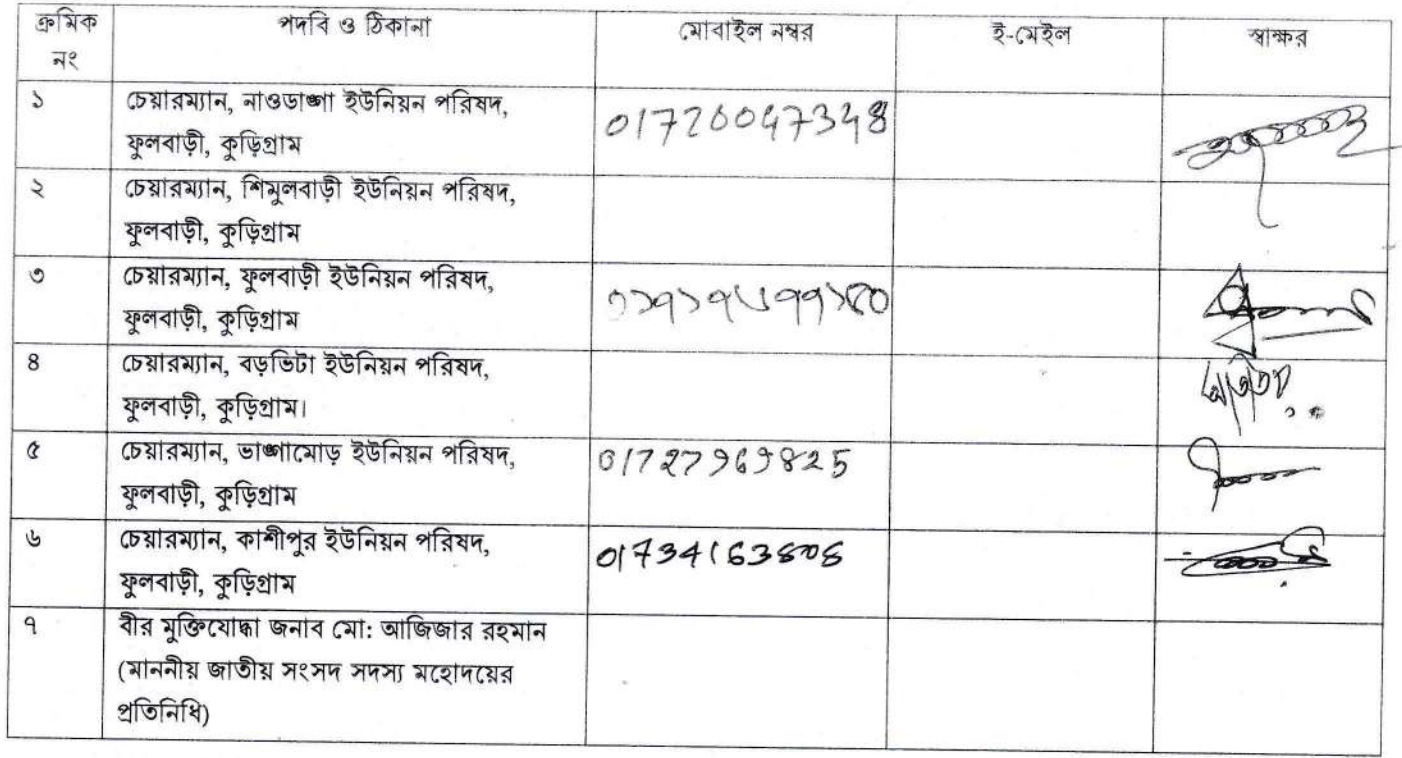 ক্রমিক নং পদবি ও ঠিকানা মোবাইল নম্বর ই-মেইল স্বাক্ষর
১ চেয়ারম্যান, নাওডাঙ্গা ইউনিয়ন পরিষদ,
ফুলবাড়ী, কুড়িগ্রাম
২ চেয়ারম্যান, শিমুলবাড়ী ইউনিয়ন পরিষদ,
ফুলবাড়ী, কুড়িগ্রাম
৩ চেয়ারম্যান, ফুলবাড়ী ইউনিয়ন পরিষদ,
ফুলবাড়ী, কুড়িগ্রাম
৪ চেয়ারম্যান, বড়ভিটা ইউনিয়ন পরিষদ,
ফুলবাড়ী, কুড়িগ্রাম।
৫ চেয়ারম্যান, ভাঙ্গামোড় ইউনিয়ন পরিষদ, 01727969825
ফুলবাড়ী, কুড়িগ্রাম
৬ চেয়ারম্যান, কাশীপুর ইউনিয়ন পরিষদ,
ফুলবাড়ী, কুড়িগ্রাম
৭ বীর মুক্তিযোদ্ধা জনাব মো: আজিজার রহমান
(মাননীয় জাতীয় সংসদ সদস্য মহোদয়ের
প্রতিনিধি)